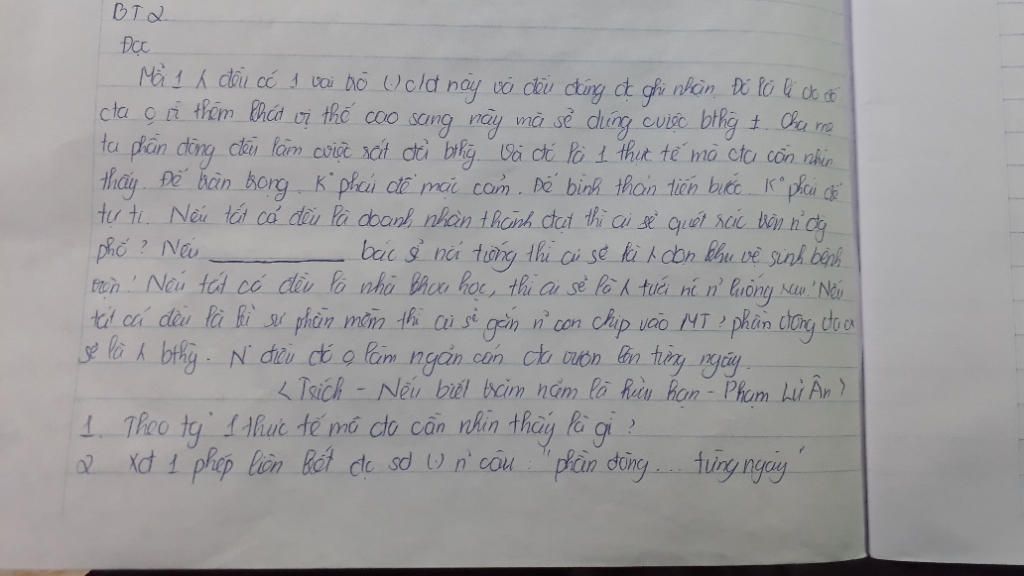 BT2
Đọc
Mỗi 1 λ đều có 1 vai trò () c/đ này và đều đáng đc ghi nhận. Đó là lí do để
cta o vì thèm khát vị thế cao sang này mà sẻ dúng cuộc bthg ±. Cha mẹ
ta phần đông đều làm cuộc rất đỗi bthg. Và đó là 1 thực tế mà cta cần nhìn
thấy. Để trân trọng. K° phải để mặc cảm. Để bình thản tiến bước. K° phải để
tự ti. Nếu tất cả đều là doanh nhân thành đạt thì ai sẽ quét rác trên n' đg
phố? Nếu ________ bác sĩ nổi tiếng thì ai sẽ là λ dọn khu vệ sinh bệnh
viện! Nếu tất cả đều là nhà khoa học, thì ai sẽ là λ tưới n' luống rau! Nếu
tất cả đều là kĩ sư phần mềm thì ai sẽ gắn n' con chip vào MT? phần đông cta
sẽ là λ bthg. N' điều đó o làm ngăn cản cta vươn lên từng ngày.
<Trích - Nếu biết trăm năm là hữu hạn - Phạm Lữ Ân>
1. Theo tg 1 thực tế mà cta cần nhìn thấy là gì?
2 Xđ 1 phép liên kết đc sd () n' câu: "phần đông... từng ngày"